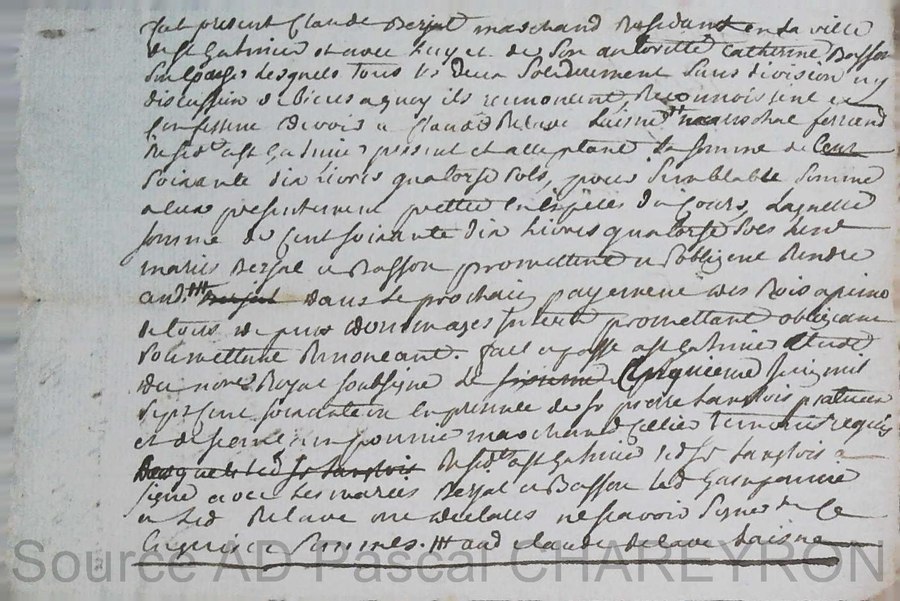 fut present Claude Berjat marchand Residant en la ville
de st Galmier et avec luy et de son autorité Catherine Basson
lesquels tous les deux solidairement sans division ny
discussion de biens a quoy ils renoncent Reconnoissent et
confessent devoir a Claude Relave Laisné marechal ferrand
Residt a st Galmier present et acceptant la somme de Cent
soixante dix livres quatorse sols, pour semblable somme
a eux presentement prettée en espèces du Cours, Laquelle
somme de Cent soixante dix Livres quatorse sols
mariés Berjat et Basson promettent et s'obligent Rendre
aud. dans le prochain payement des Rois a peine
de tous depens dommages Interets promettant obligeant
soumettant Renonceant. fait et passé a st Galmier Etude
du notre Royal soussigné le Cinquieme Juin mil
sept Cent soixante un En presence de sr pierre Langlois praticien
et de marchand sellier temoins requis
Residts a st Galmier led sr Langlois a
signé avec Les mariés Berjat et Basson led
et Led Relave ont declarés ne scavoir signer de Ce
Enquis et sommés. aud Claude Relave Laisné
Source AD Pascal CHAREYRON